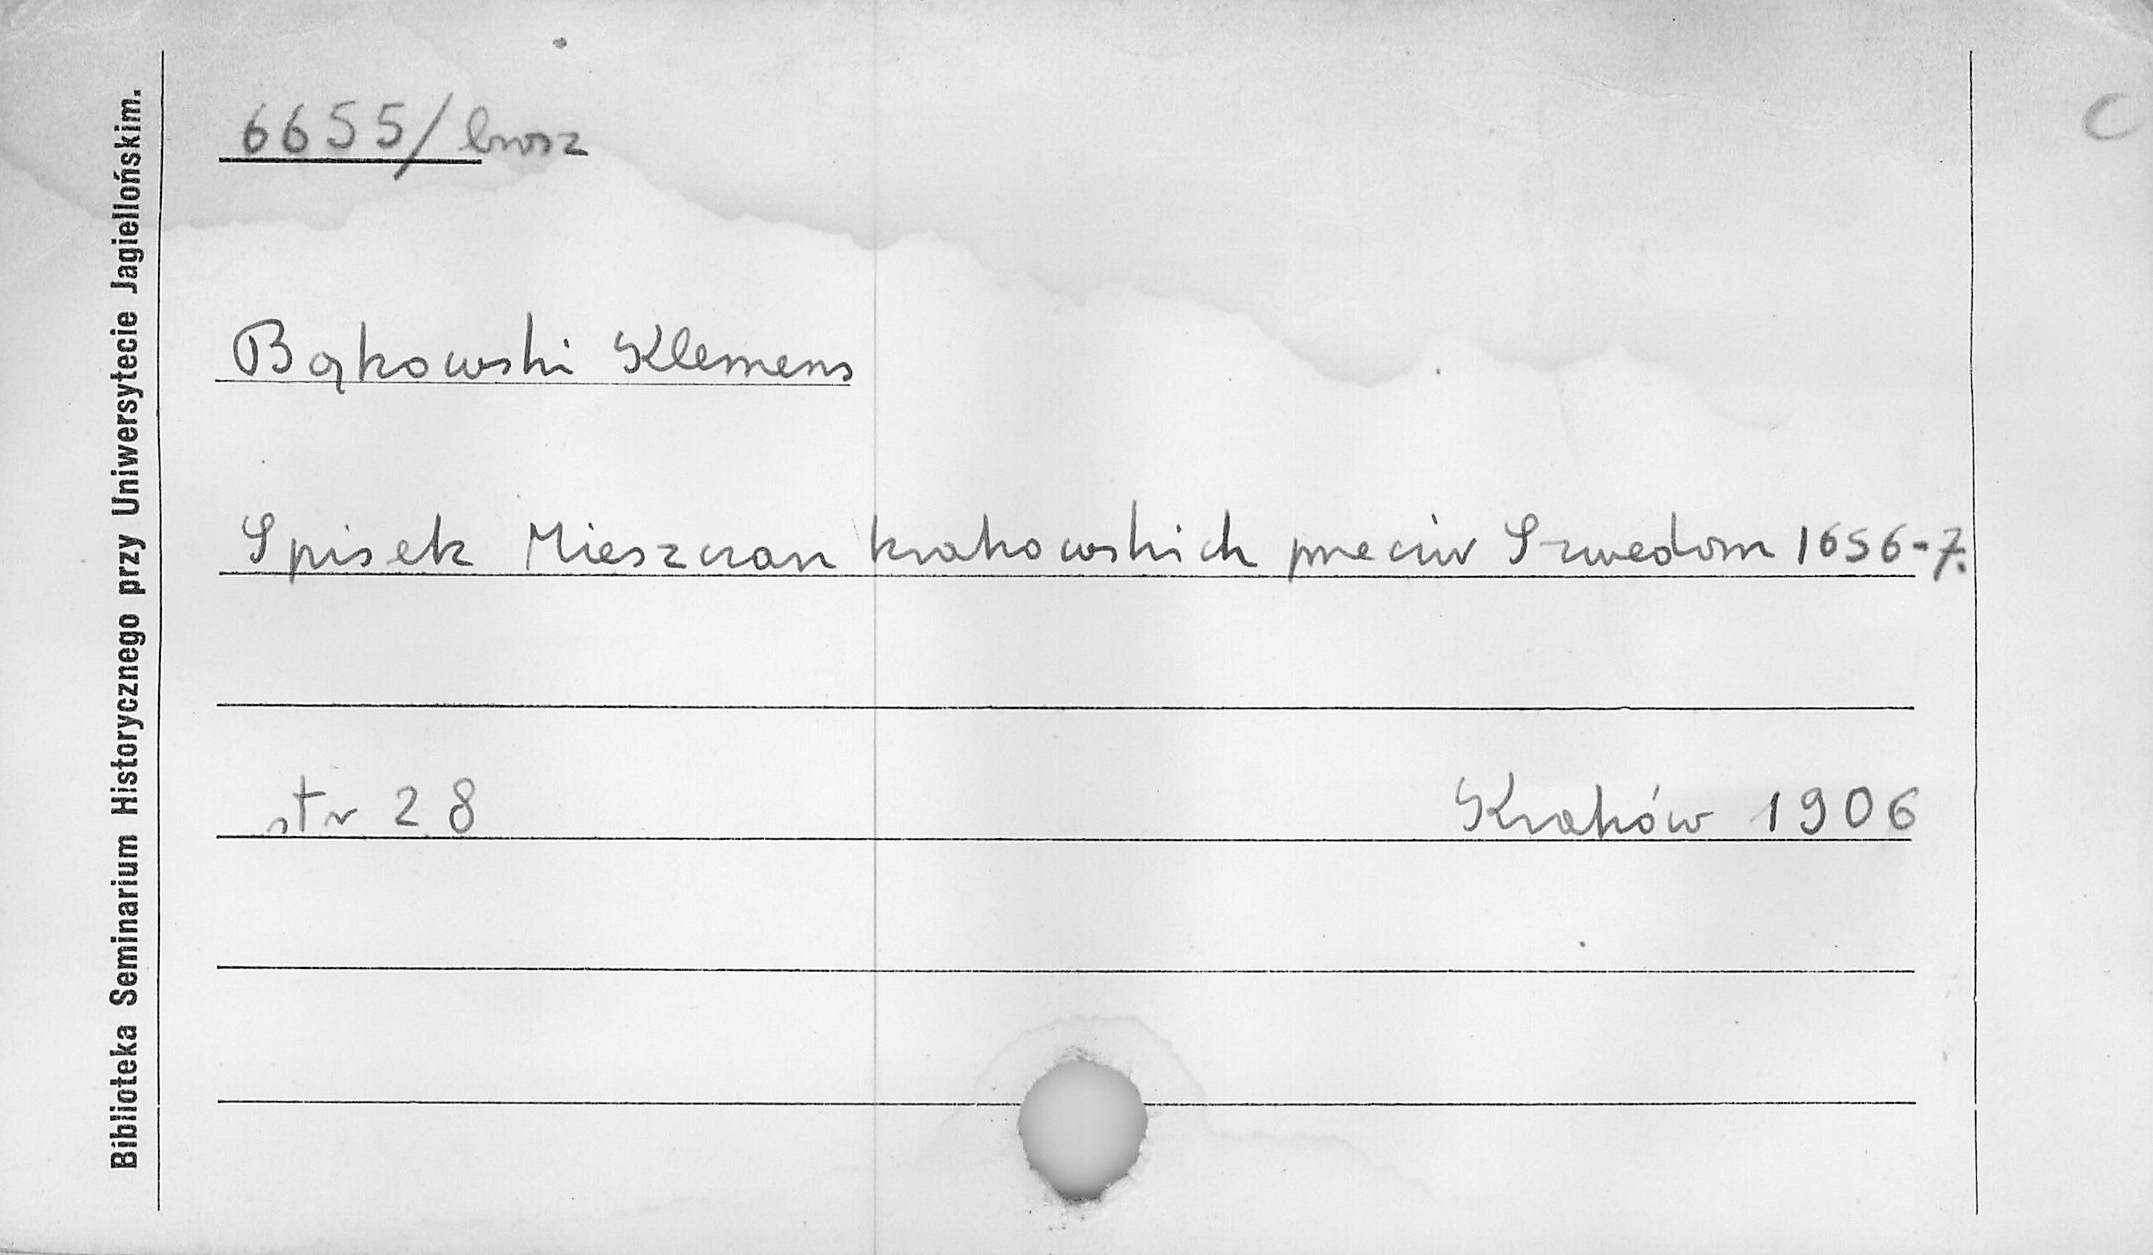 Biblioteka Seminarium Historycznego przy Uniwersytecie Jagiellońskim.
6655/brosz
C
Bąkowski Klemens
Spisek Mieszczan krakowskich przeciw Szwedom 1656-7.
str 28 Kraków 1906